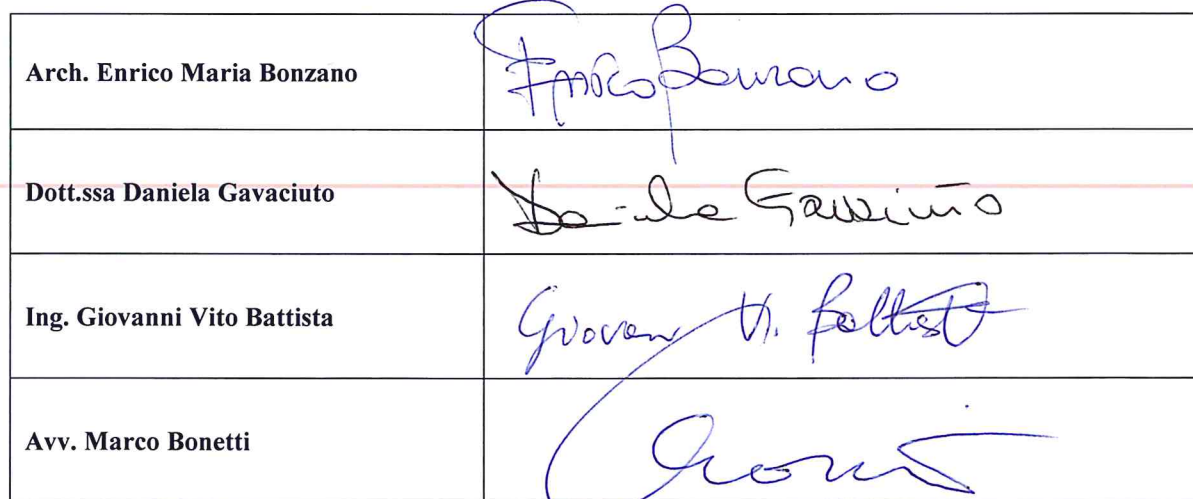 Arch. Enrico Maria Bonzano
Enrico Bonzano
Dott.ssa Daniela Gavaciuto
Daniela
Ing. Giovanni Vito Battista
V. Battista
Avv. Marco Bonetti